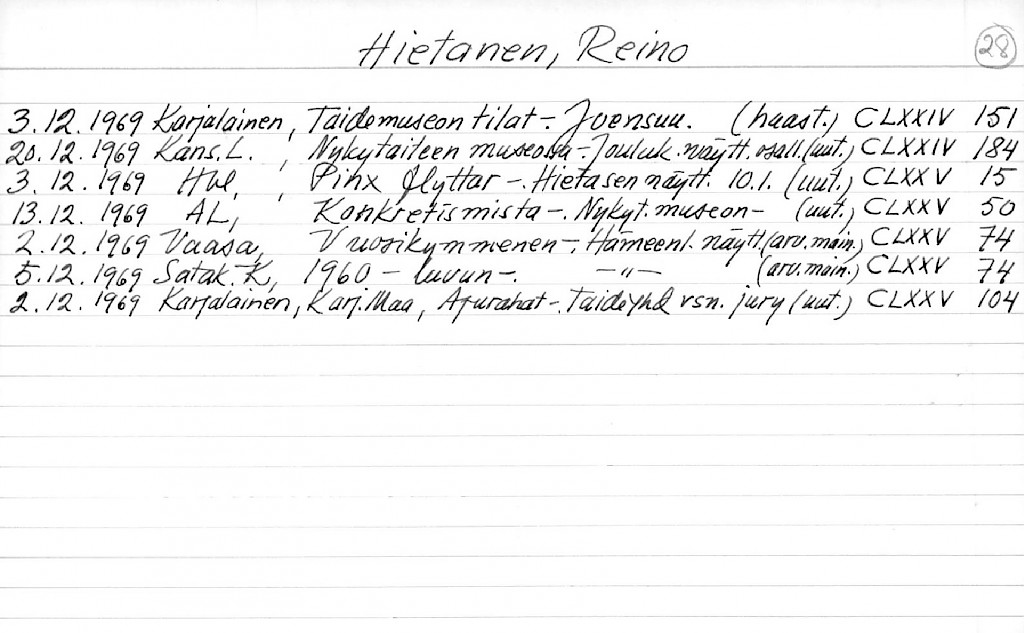 Hietanen, Reino 28
3.12.1969 Karjalainen, Taidemuseon tilat-. Joensuu. (haast.) CLXXIV 151
20.12.1969 Kans.L. , Nykytaiteen museossa-. Jouluk. näytt. osall. (uut.) CLXXIV 184
3.12.1969 Hbl, , Pinx flyttar -. Hietasen näytt. 10.1. (uut.) CLXXV 15
13.12.1969 AL, , Konkretismista-. Nykyt. museon- (uut.) CLXXV 50
2.12.1969 Vaasa, Vuosikymmenen-. Hämeenl. näytt. (arv. main.) CLXXV 74
5.12.1969 Satak. K, 1960-luvun-. -"- (arv. main.) CLXXV 74
2.12.1969 Karjalainen, Karj. Maa, Apurahat-. Taideyhd rsn. jury (uut.) CLXXV 104